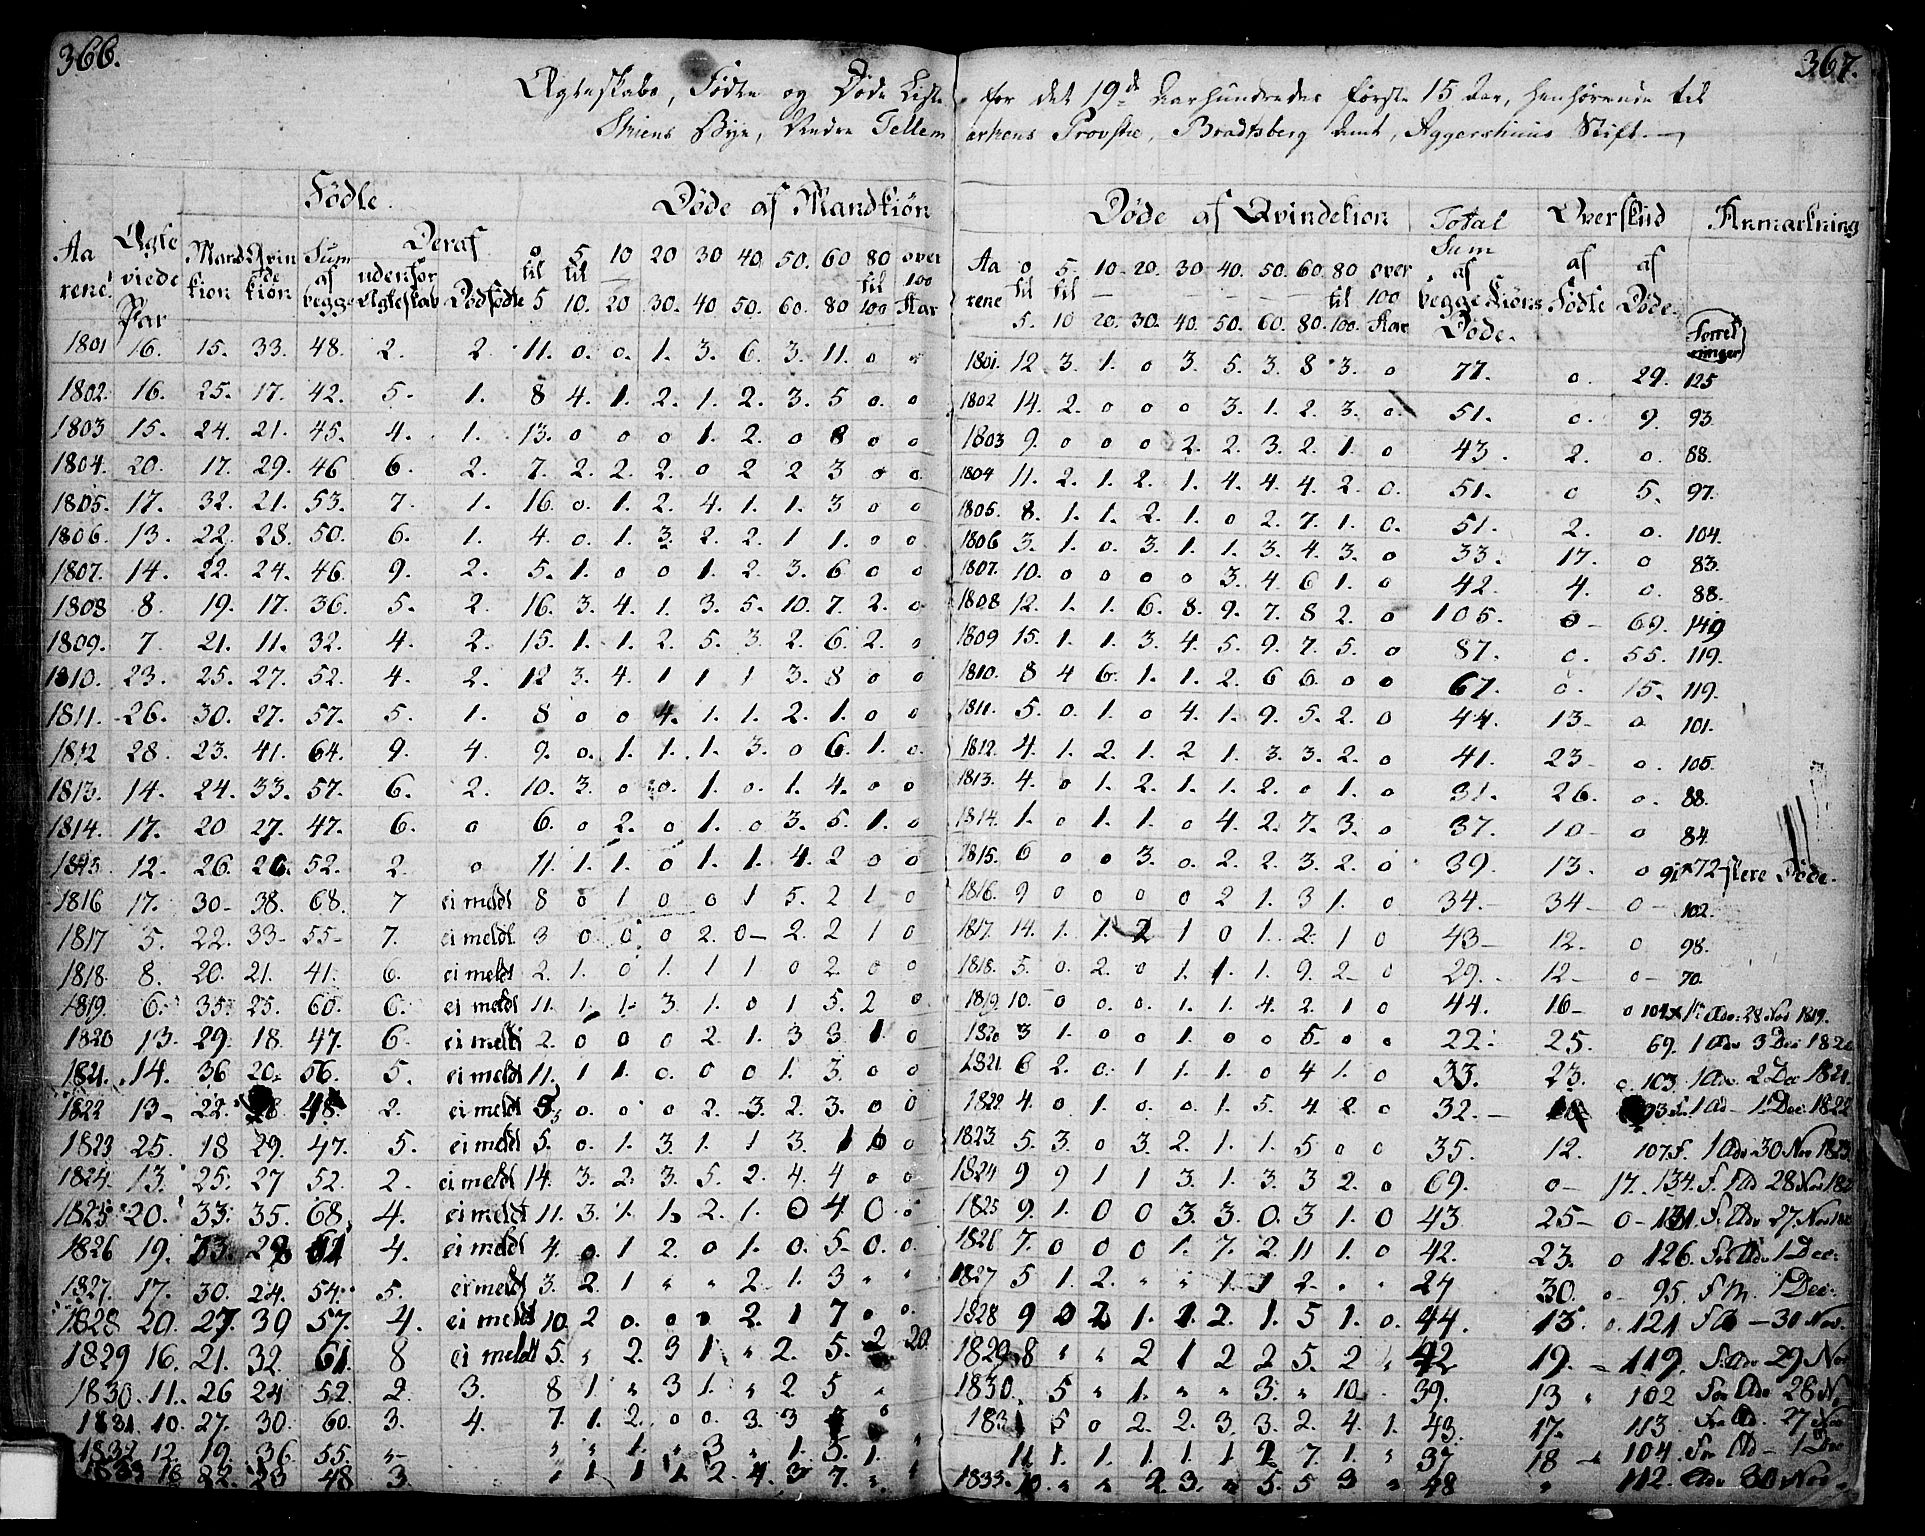 366.
367.
Ægteskabs, Fødte og Døde Liste for det 19de Aarhundredes første 15 Aar, henhørende til
Skiens Bye, Nedre Tellemarkens Provstie, Bradtsberg Amt, Aggershuus Stift.
Fødte. Døde af Mandkiön Døde af Qvindekion Total Sum af begge Kiöns Døde. Overskud Anmærkning
Aarene Ægteviede Par Mandkion Qvindekiön Sum af begge Deraf udenfor Ægteskab Dødfødte 0 til 5 5 til 10. 10 20 20 30. 30 40 40. 50. 50. 60. 60 80 80 til 100 over 100 Aar
Aarene 0 til 5. 5. til 10 10. 20. 20. 30. 30 40. 40. 50. 50. 60. 60. 80. 80 til 100. over 100 Aar af Fødte af Døde.
1801 16. 15. 33. 48. 2. 2. 11. 0. 0. 1. 3. 6. 3. 11. 0 1801. 12 3. 1. 0 3. 5. 3. 8 3. 0 77. 0. 29. 125
1802. 16. 25. 17. 42. 5. 1. 8 4. 1. 2. 1. 2. 3. 5 0. 0 1802 14. 2. 0 0 0 3. 1. 2. 3. 0. 51. 0. 9. 93.
1803 15. 24. 21. 45. 4. 1. 13. 0 0 0 1. 2. 0 8 0 0 1803 9. 0 0 0 2. 2. 3. 2. 1. 0 43. 2. 0. 88.
1804. 20. 17. 29. 46 6. 2. 7. 2. 2. 2. 0 2 2 3 0 0. 1804 11. 2. 1. 2. 1. 4. 4. 4. 2. 0. 51. 0 5. 97.
1805. 17. 32. 21. 53. 7. 1. 16. 0. 1. 2. 4. 1. 1. 3 0 0 1805. 8. 1. 1. 2. 1. 0 2. 7. 1. 0. 51. 2. 0. 104.
1806. 13. 22. 28. 50. 6. 1. 4. 0. 1. 3. 2. 2 1 1. 0 0 1806 3. 1. 0. 3. 1. 1. 3. 4. 3. 0 33. 17. 0 83.
1807. 14. 22. 24. 46. 9. 2. 5. 1. 0 0 1. 2. 3. 6 0 0 1807. 10. 0 0 0 0 3. 4 6 1. 0 42. 4. 0. 88.
1808 8. 19. 17. 36. 5. 2. 16. 3. 4. 1. 3. 5. 10. 7. 2. 0 1808 12. 1. 1. 6. 8. 9. 7. 8 2. 0 105. 0 69. 149
1809. 7 21. 11. 32. 4. 2. 15. 1. 1. 2. 5. 3. 2. 6. 2. 0 1809 15. 1. 1. 3. 4. 5. 9. 7. 5. 0 87. 0. 55. 119.
1810. 23. 25. 27. 52. 4. 2. 12 3. 4. 1 1 1 3. 8 0 0 1810. 8 4 6. 1. 1. 2. 6 6. 0 0 67. 0. 15. 119.
1811. 26. 30. 27. 57. 5. 1. 8 0 0 4. 1. 1. 2. 1. 0 0 1811. 5. 0. 1. 0 4. 1. 9. 5. 2. 0 44. 13. 0 101.
1812 28. 23. 41. 64. 9. 4. 9. 0. 1. 1. 1. 3. 0 6. 1. 0. 1812. 4. 1. 2. 1. 2 1. 3. 3. 2. 0 41. 23 0. 105.
1813. 14. 24. 33. 57. 6. 2. 10. 3. 0 0. 1. 0. 1. 4. 0 0 1813. 4. 0 1. 2. 1. 1. 2. 0 1. 0 31. 26. 0. 88.
1814. 17. 20 27. 47. 6. 0 6. 0 2. 0 1. 0 3. 5. 1. 0 1814. 1. 0 1. 1. 0 4. 2. 7. 3. 0 37. 10 0 84
1815. 12. 26. 26. 52. 2. 0 11. 1. 1. 0 1. 1. 4. 2 0 0 1815. 6 0 0 3. 0. 2. 2. 3. 2. 0 39. 13. 0 91. 72 flere Døde.
1816 17. 30 38. 68. 7 ei meldt 8 0 1 0 0 1 5. 2 1 0 1816. 9 0 0 0 0 2 1. 3 1. 0 34. 34 0 102.
1817 5. 22. 33 55 7. ei meldt. 3 0 0 0 2. 0 2. 2 1 0 1817. 14. 1. 1. 2 1 0 1. 2. 1 0 43 12. 0 98.
1818. 8. 20. 21. 41. 6. ei meldt 2. 1. 0 1. 1 1 0 2. 0 0 1818. 5. 0. 2. 0 1. 1. 1. 9. 2 0 29. 12 0 70.
1819. 6. 35. 25. 60. 6. ei meldt 11. 1. 1. 3 1. 0 1 5. 2 0 1819. 10. 0 0. 0. 1. 1. 4 2. 1 0 44. 16 0 104 28 Nov 1819.
1820 13. 29. 18. 47. 6 ei meldt 2. 0 0 0 2 1. 3 3 1. 0 1820 3 1. 0 0 1. 0 0 5. 0 0 22. 25. 69. 1 Adv 3 Dec 182
1821. 14. 36 20. 56. 5. ei meldt 11. 1 1. 0. 0 0 1. 3. 0 0 1821. 6 2. 0. 1 1. 1. 0 4 1. 0 33. 23. 0. 103. 1 Adv. 2 Dec 1821.
1822 13 22. 48. 2. ei meldt 5 0. 0 0 2. 3. 2. 3. 0 0 1822. 4. 0 1. 0. 0. 1. 5. 4. 2. 0 32. 93. 1 Ad 1. Dec: 1822
1823 25. 18 29. 47. 5. ei meldt 5. 0. 1. 3. 1. 1 3. 1 0 1823. 5. 3. 0 3. 2. 1. 1. 5 0 0 35. 12. 107. 1 Adv. 30 Nov 1823.
1824. 13. 25. 27 52. 2. ei meldt 14. 3. 2. 3. 5. 2. 4. 4 0 0 1824 9 9 1 1 3. 1. 3. 3 2. 0 69. 0 17. 134. 28 Nov 182
1825. 20. 33. 35. 68. 4. ei meldt 11. 3. 1. 1. 2. 1. 0 4. 0 1825 9. 1. 0 0 3. 3. 0. 3 1. 0 43 25 0 131. 27 Nov 182
1826 19. 33. 28 61 4. ei meldt 4. 0. 1 2. 0 1. 0. 5. 0. 0. 1826 7. 0 0 0 1. 7. 2. 11 1. 0 42. 23. 0 126. 1 Dec:
1827. 17. 30. 24. 54. 5. ei meldt 3. 2. 1 " " 2. 1. 3 " " 1827 5 1. 2. " " 1. 1 2. " " 24 30. 0 95. 1 Dec:
1828 20. 27. 39 57. 4. ei meldt 10. 2 0. 0. 0 2. 1 7 0 0. 1828 9 0 2 1. 1. 2. 1. 5 1. 0. 44. 13. 0. 121 30 Nov.
1829 16. 21. 32. 61. 8 ei meldt 5. " 2. 3 1 " 2. 5. 2. 20. 1829. 8 " " 2 1 2 2 5. 2 " 42 19. 119. 29 Nov
1830. 11. 26 24 52. 2. 3. 8 1. " 3 1. " 2. 5 " 1830. 5 " 1. " " 3. " 10. 39. 13 " 102 28 N
1831. 10. 27. 30. 60. 3. 4. 7. 1. 2. 0 0. 3. 3. 0 183 5 0 2. 2. 3. 3. 2. 4 1. 43. 17. 113 27 Nov
1832 12. 19. 36. 55. " " 1. " 3 " 1. 5. 1. " 11 1. 1. 1. 1. 1 2 7. 1. " 37 18 104. 1 Dec
1833 18 23 48 3. " 1 1 1. 2. 4. 3 7. " 1833. 10. " " 2. 3. " 5. 5 3 " 48 " 112. 30 Nov